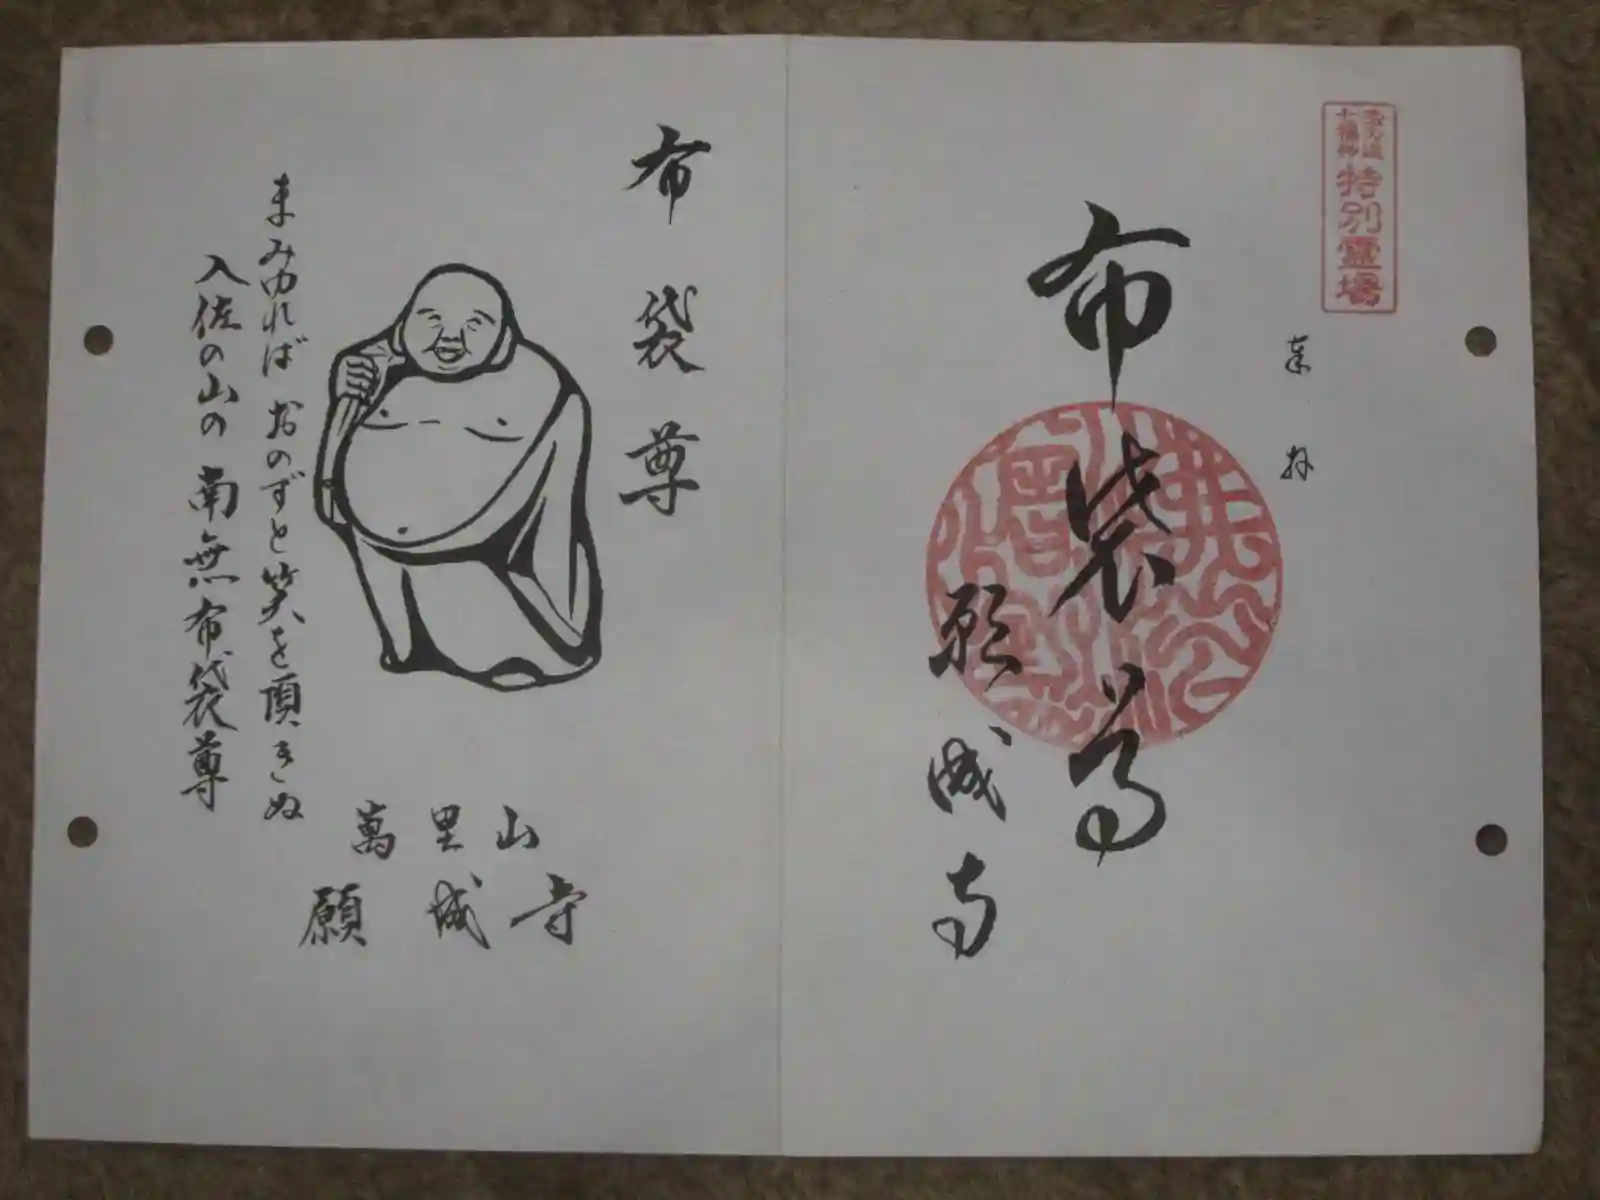 七福神
特別霊場
奉拝
布袋尊
願成寺
布袋尊
まみゆれば おのずと笑を頂きぬ
入佐の山の 南無布袋尊
萬里山
願成寺